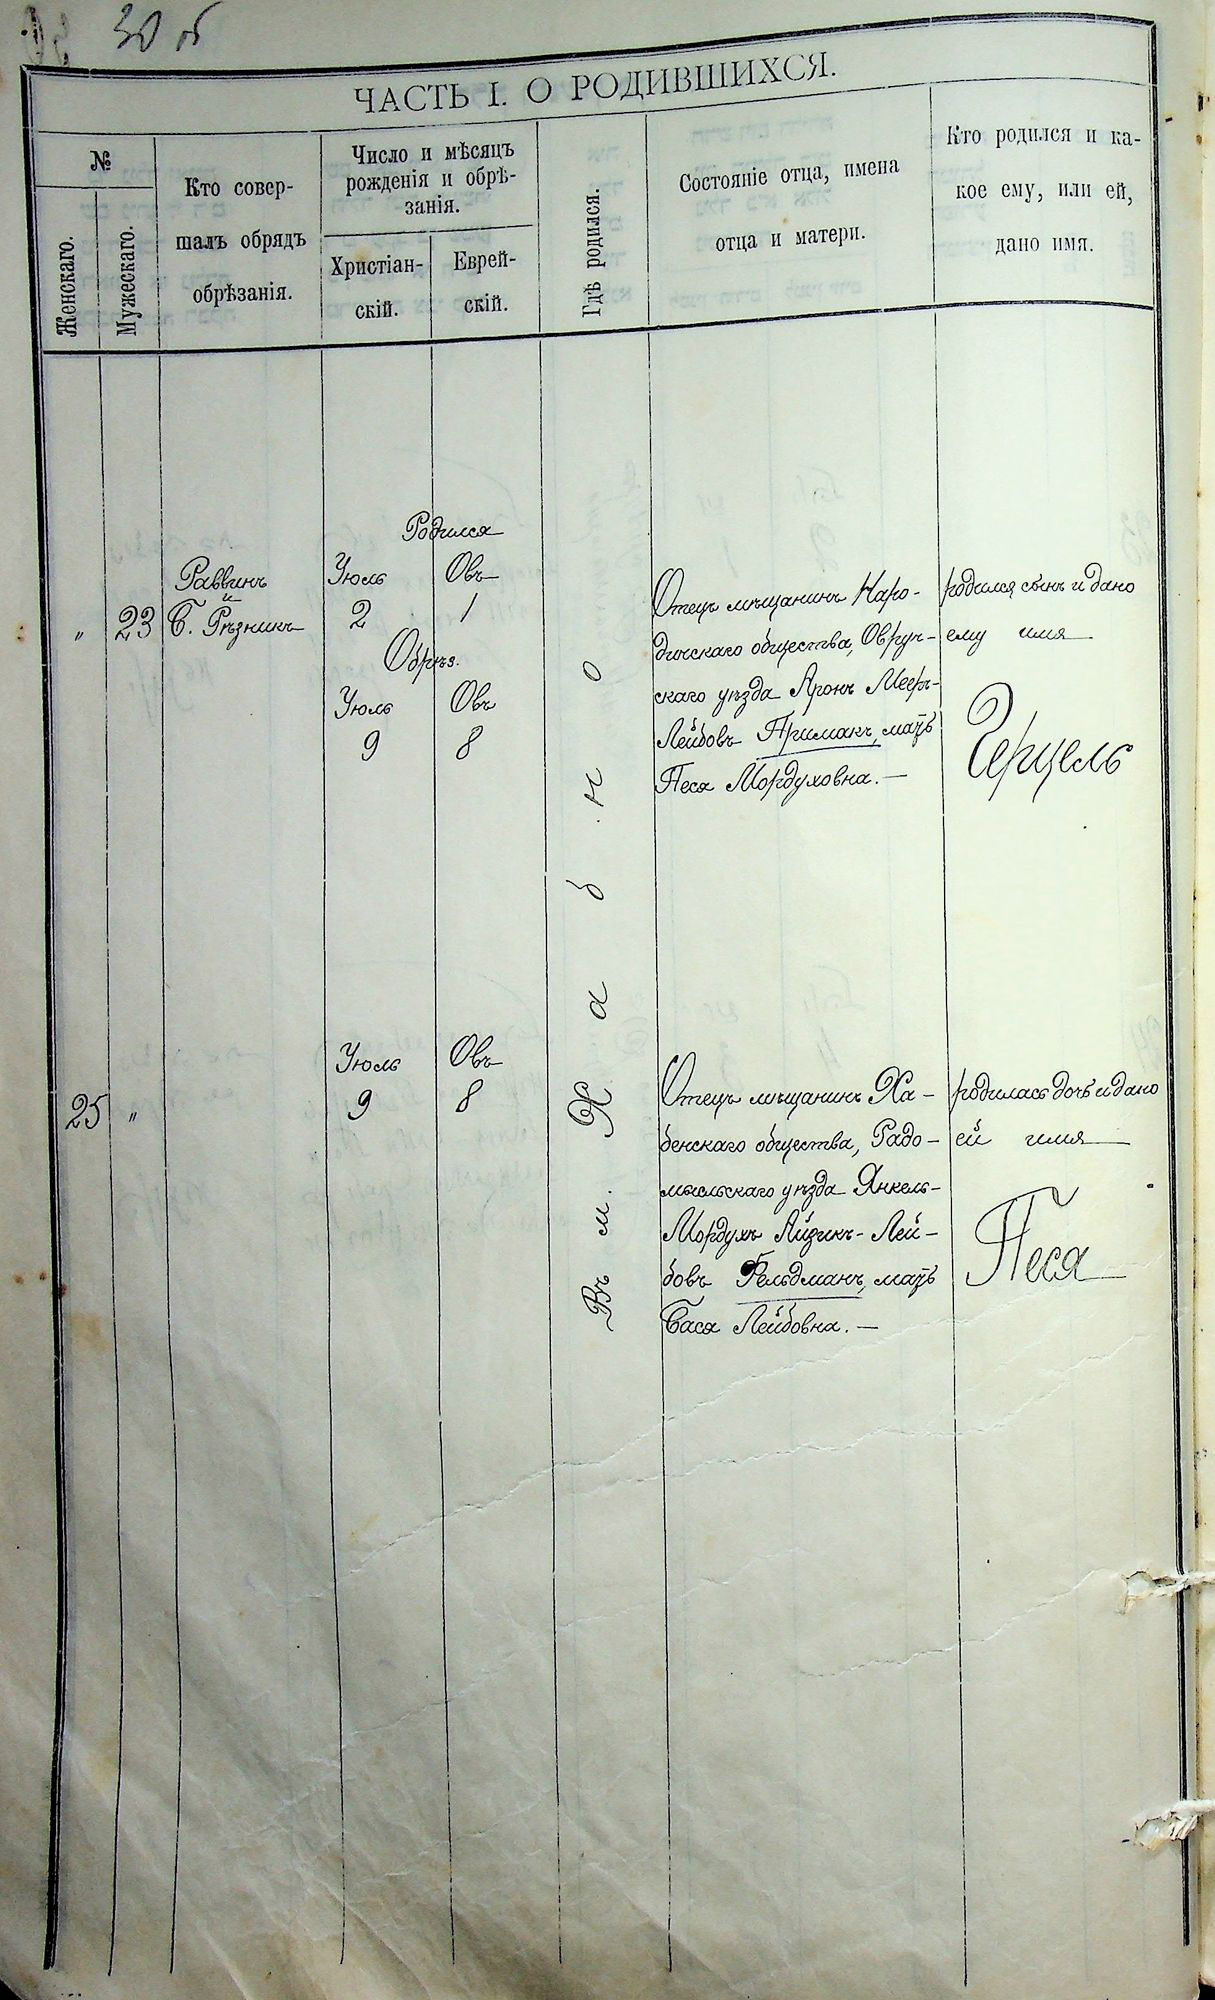 30 об
ЧАСТЬ I. О РОДИВШИХСЯ.
№
Женскаго.
Мужескаго.
Кто совер-
шалъ обрядъ
обрѣзанія.
Число и мѣсяцъ
рожденія и обрѣ-
занія.
Христіан-
скій.
Еврей-
скій.
Гдѣ родился.
Состояніе отца, имена
отца и матери.
Кто родился и ка-
кое ему, или ей,
дано имя.
„ 23
Раввинъ
и
Б. Рѣзникъ
Родился
Іюль Овъ
2 1
Обрѣз.
Іюль Овъ
9 8
Въ м. Хабно
Отецъ мѣщанинъ Наро-
дичскаго общества, Овруч-
скаго уѣзда Аронъ Меер-
Лейбовъ Примакъ, мать
Песя Мордуховна. —
родился сынъ и дано
ему имя
Герцель
25 „
Іюль Овъ
9 8
Отецъ мѣщанинъ Ха-
бенскаго общества, Радо-
мысльскаго уѣзда Янкель-
Мордухъ Айзикъ-Лей-
бовъ Фельдманъ, мать
Бася Лейбовна. —
родилась дочь и дано
ей имя
Песя